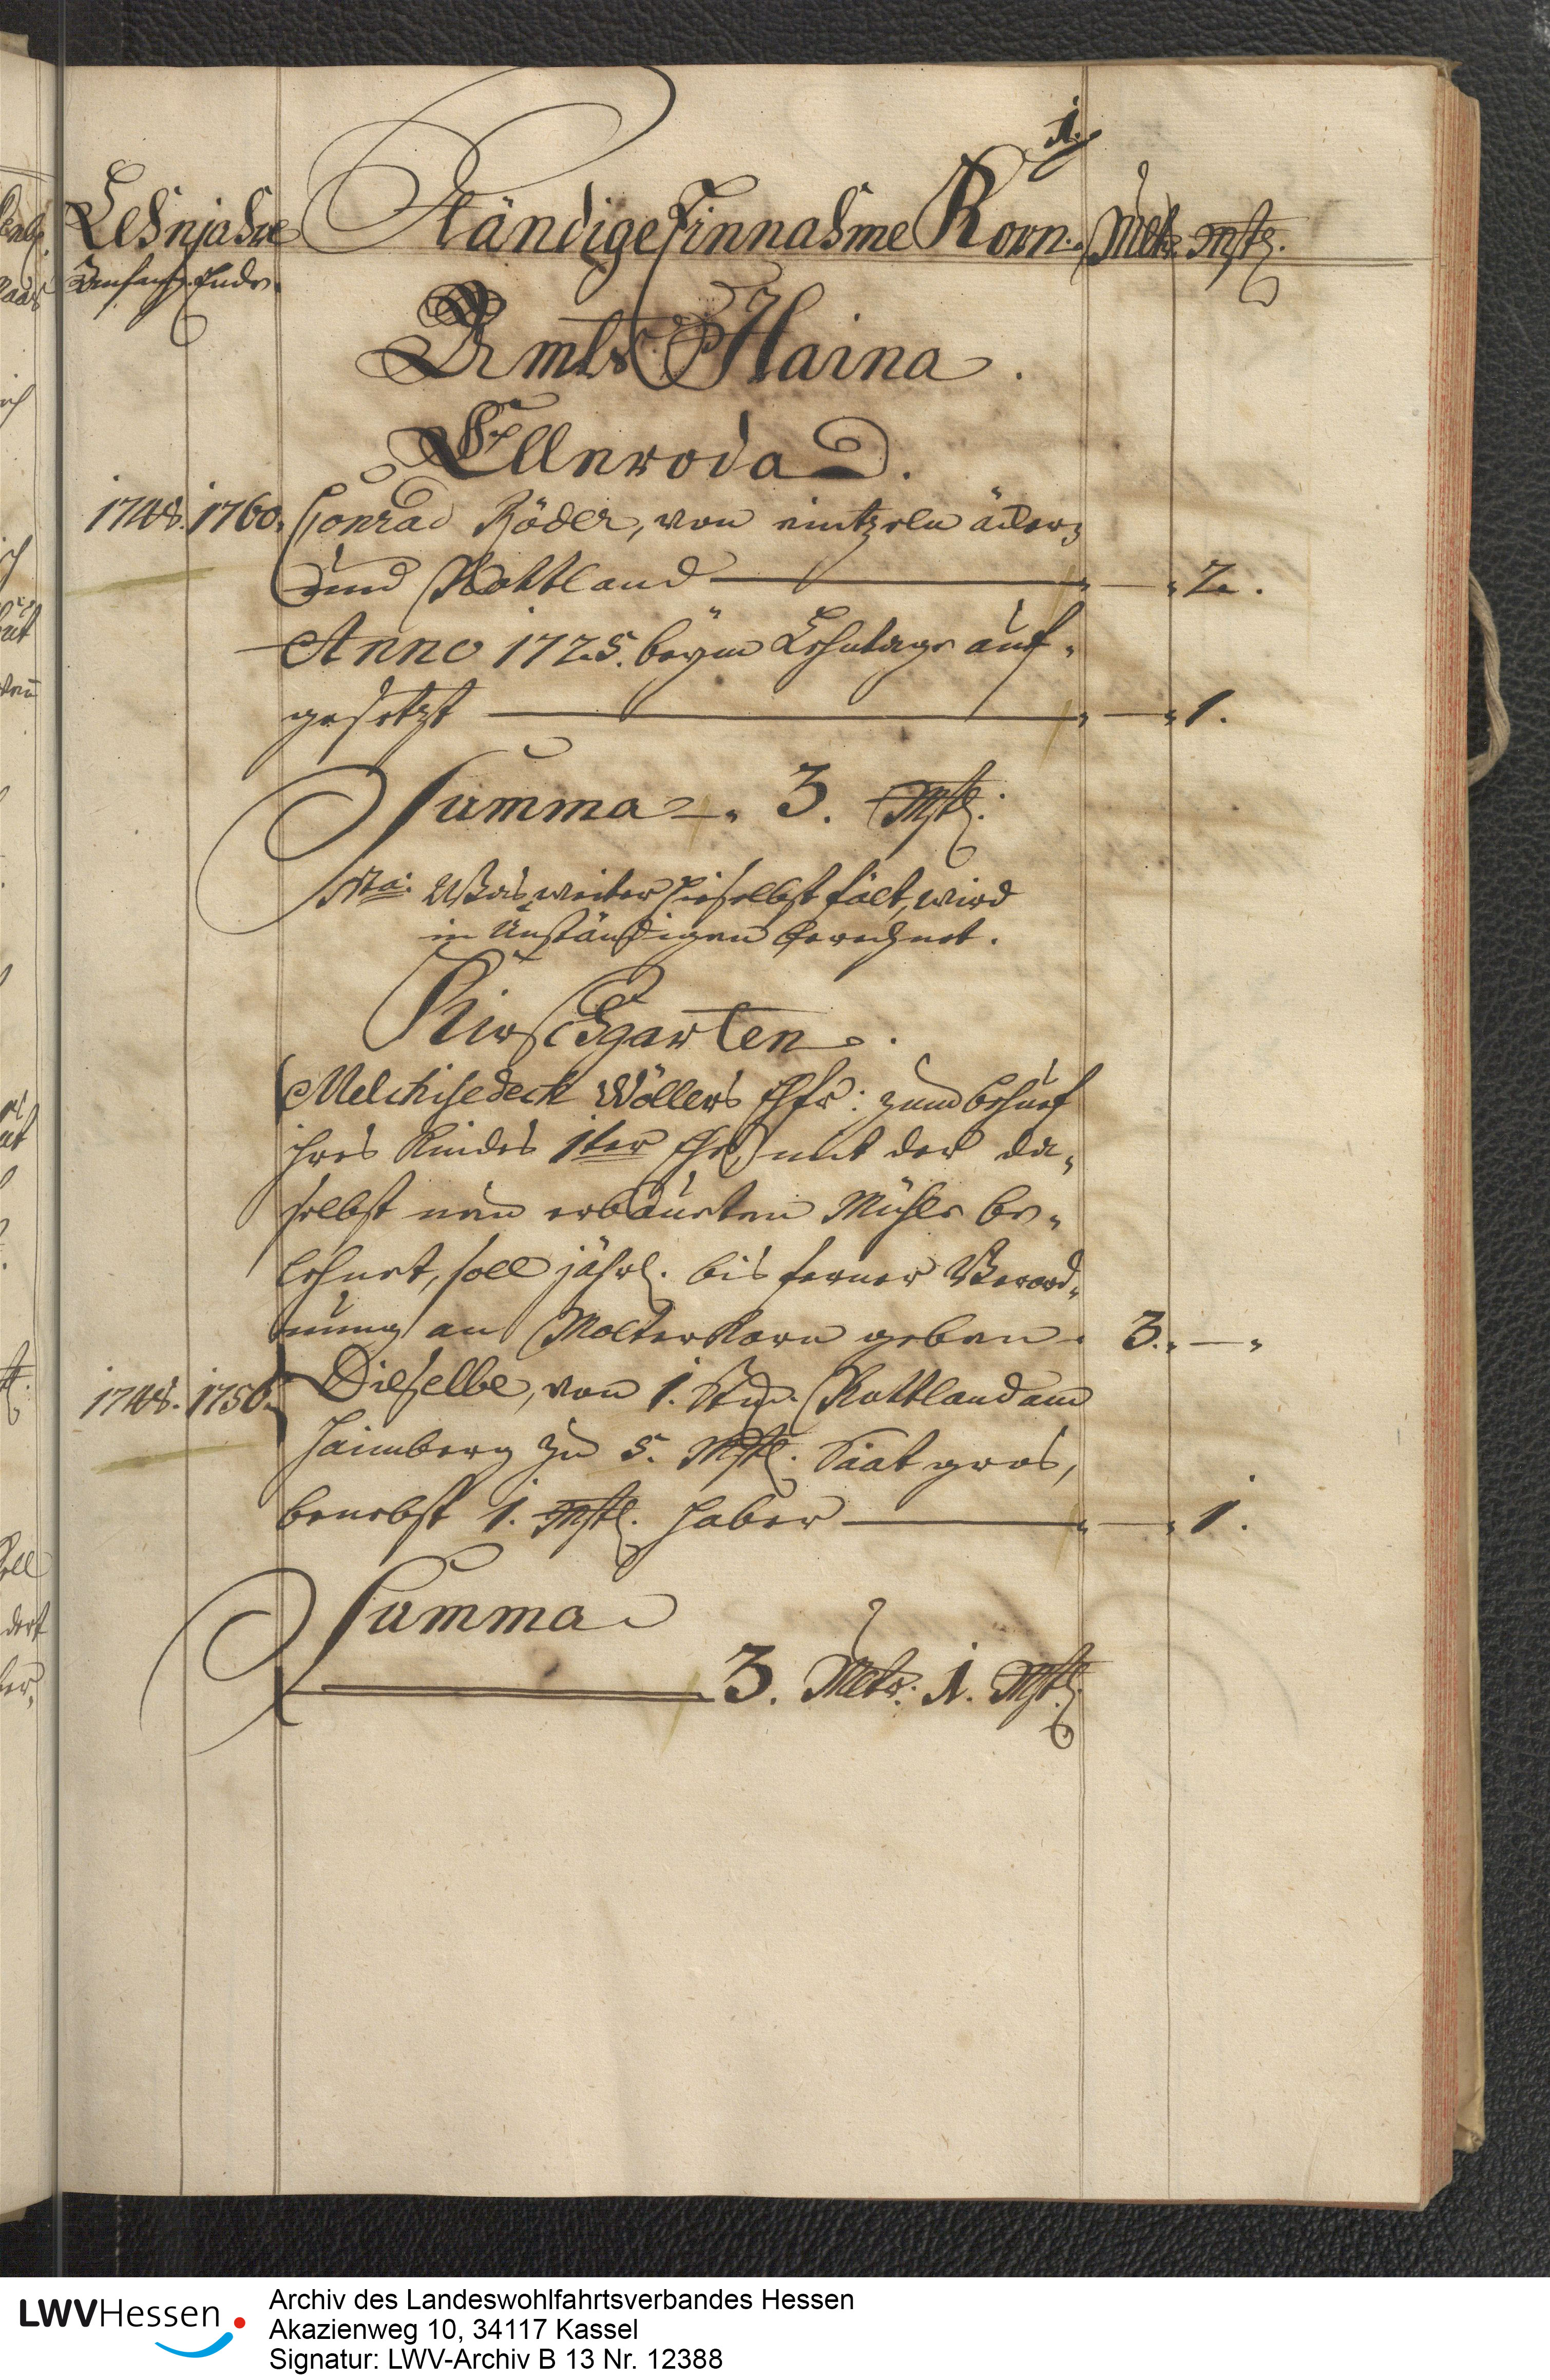 1.
Lehnjahre Ständige Einnahme Korn. Mltr. Mstl.
Anfang. Ende.
Amts Haina.
Ellnroda.
1748. 1760. Conrad Röder, von eintzeln äckern
und Rottland — 2.
Anno 1725. beym Lehntage auf-
gesetzt — 1.
Summa 3. Mstl.
Nta: Was weiter hieselbst fält, wird
in Unständigen berechnet.
Kirschgarten.
Melchisedech Wöllers Ehfr: zum behuef
ihres Kindes 1ter Ehe, mit der da-
selbst neu erbaueten Mühle be-
lehnet, soll jährl. bis ferner Verord-
nung an Molterkorn geben. 3. —
1748. 1756. Dieselbe, von 1. Rottland am
Haimberg zu 5. Mstl. Saat gros,
benebst 1. Mstl. Haber — 1.
Summa
3. Mltr. 1. Mstl.
LWVHessen
Archiv des Landeswohlfahrtsverbandes Hessen
Akazienweg 10, 34117 Kassel
Signatur: LWV-Archiv B 13 Nr. 12388